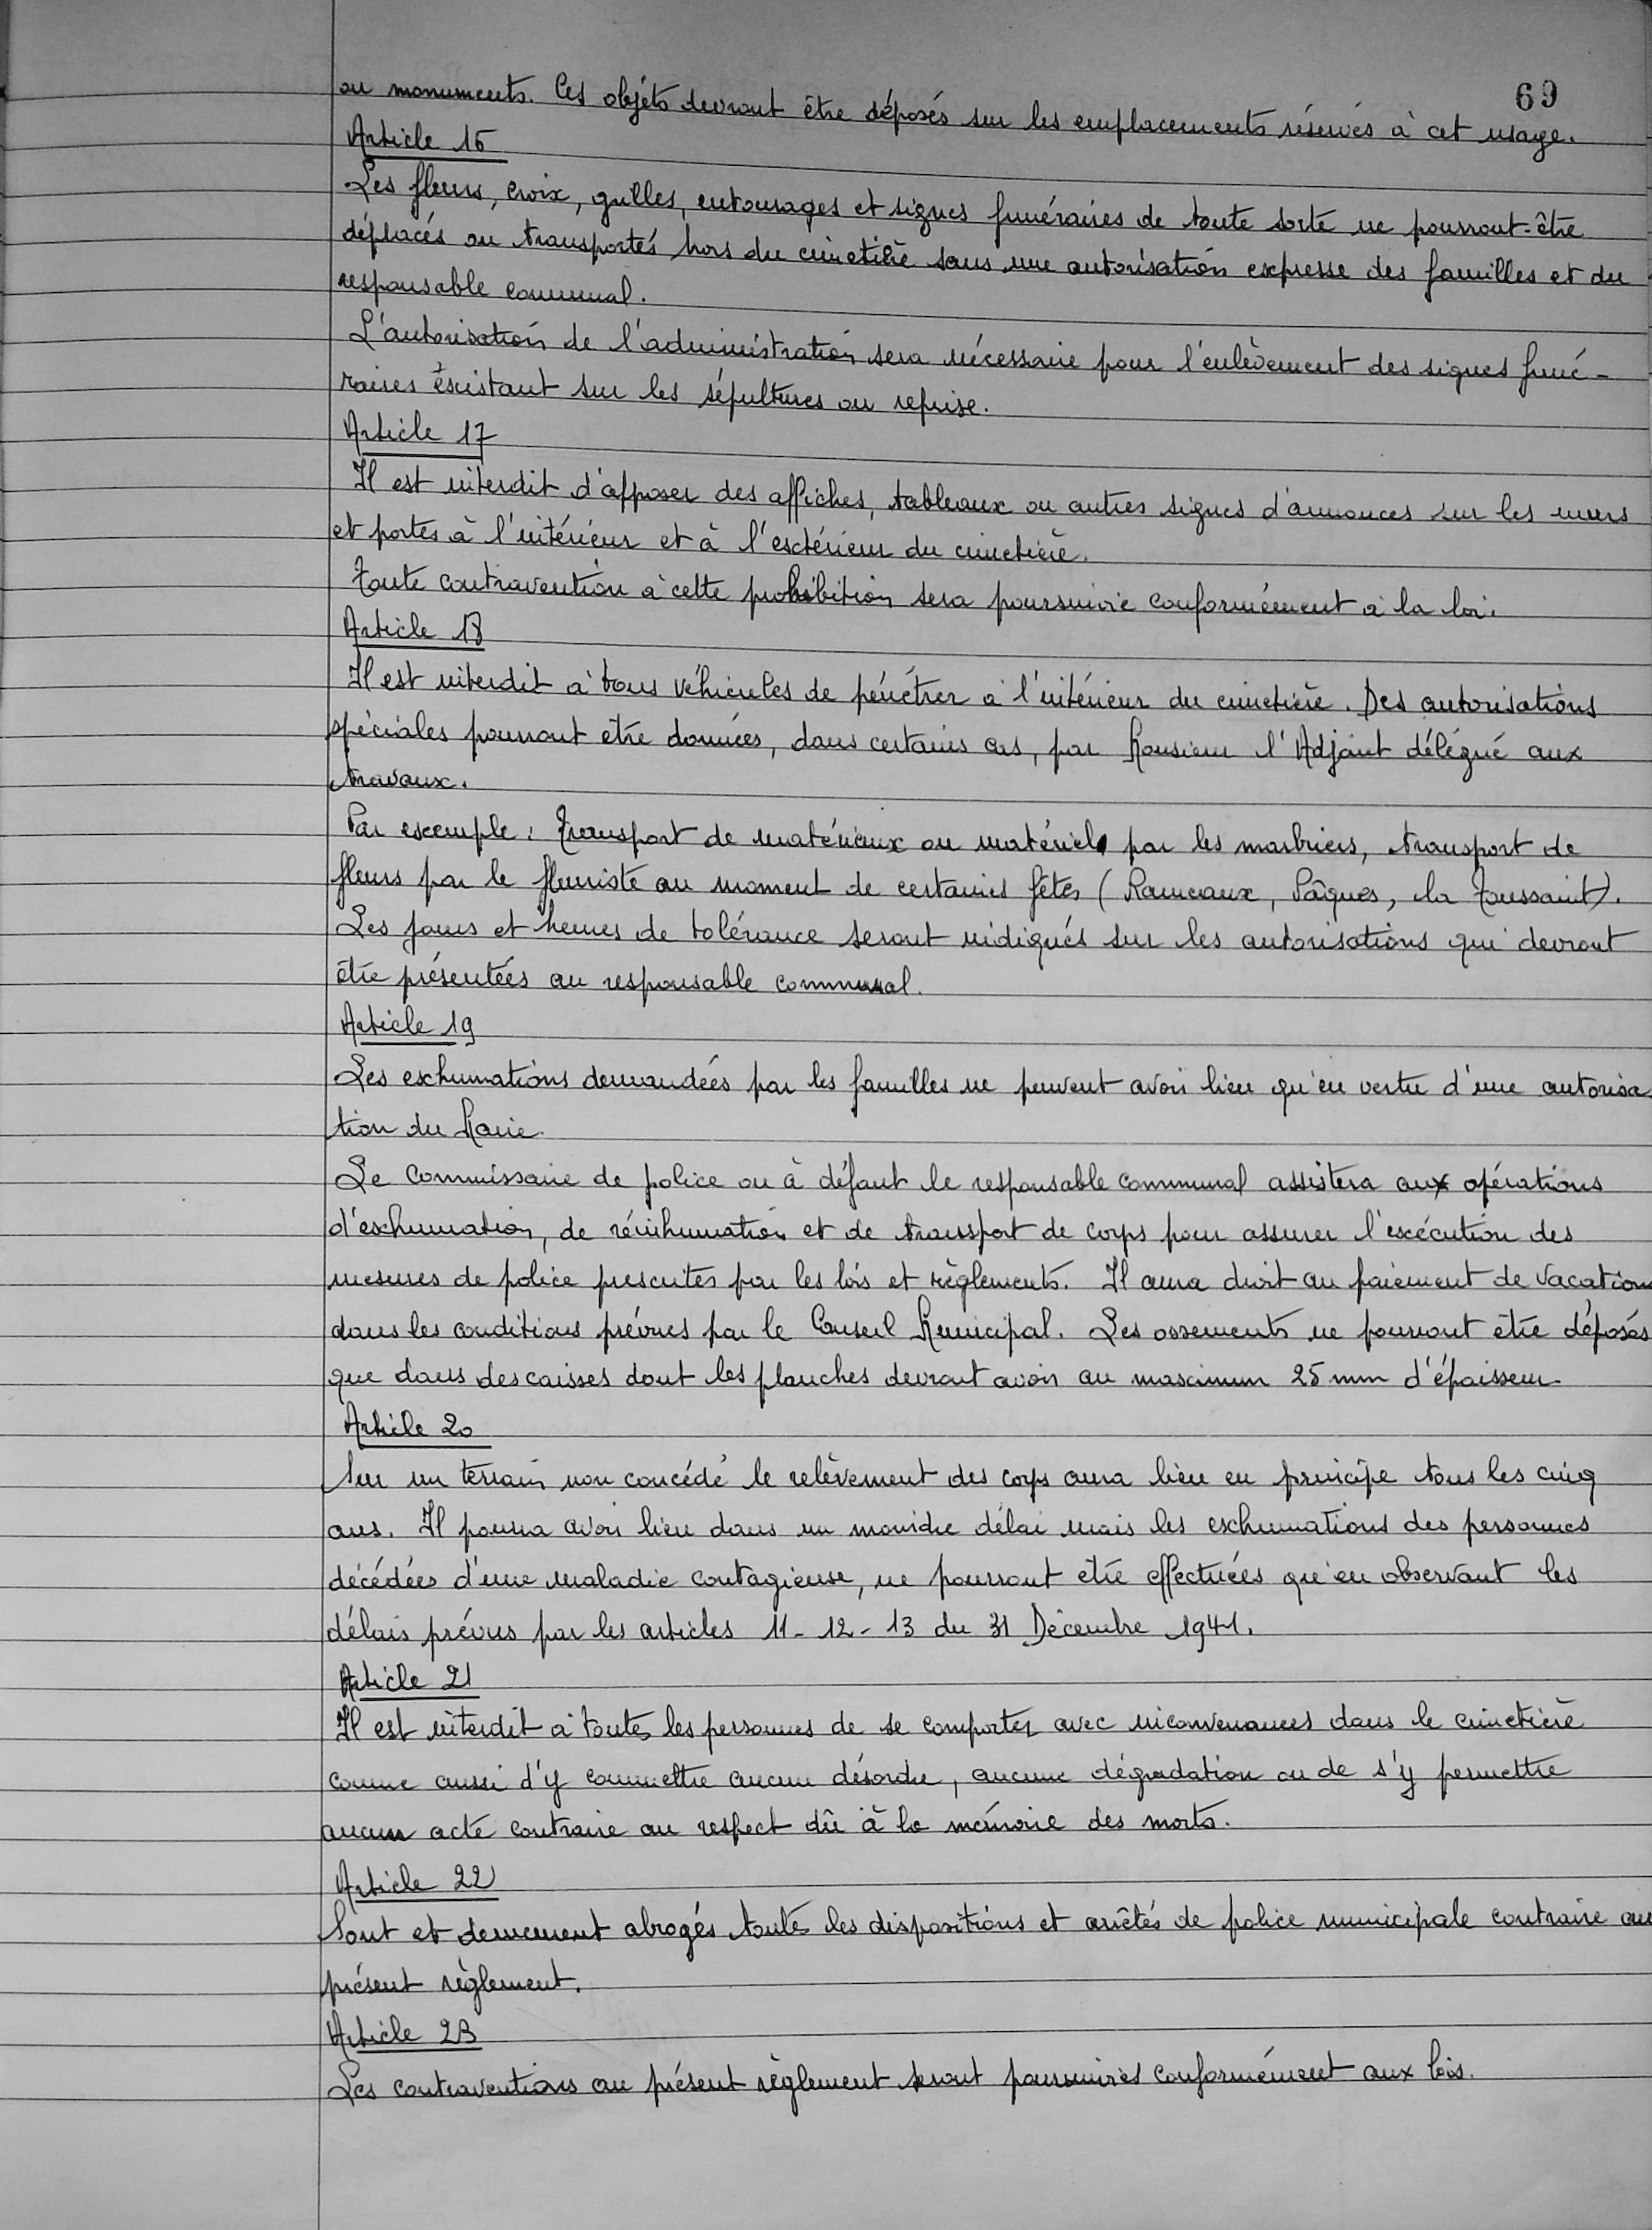 69
ou monuments. Ces objets devront être déposés sur les emplacements réservés à cet usage.
Article 16
Les fleurs, croix, grilles, entourages et signes funéraires de toute sorte ne pourront-être
déplacés ou transportés hors du cimetière sans une autorisation expresse des familles et du
responsable communal.
L'autorisation de l'administration sera nécessaire pour l'enlèvement des signes funé-
raires existant sur les sépultures ou reprise.
Article 17
Il est interdit d'apposer des affiches, tableaux ou autres signes d'annonces sur les murs
et portes à l'intérieur et à l'extérieur du cimetière.
Toute contravention à cette prohibition sera poursuivie conformément à la loi.
Article 18
Il est interdit à tous véhicules de pénétrer à l'intérieur du cimetière. Des autorisations
spéciales pourront être données, dans certains cas, par Monsieur l'Adjoint délégué aux
travaux.
Par exemple : Transport de matériaux ou matériel par les marbriers, transport de
fleurs par le fleuriste au moment de certaines fêtes (Rameaux, Pâques, la Toussaint).
Les jours et heures de tolérance seront indiqués sur les autorisations qui devront
être présentées au responsable communal.
Article 19
Les exhumations demandées par les familles ne peuvent avoir lieu qu'en vertu d'une autorisa-
tion du Maire.
Le Commissaire de police ou à défaut le responsable communal assistera aux opérations
d'exhumation, de réinhumation et de transport de corps pour assurer l'exécution des
mesures de police prescrites par les lois et règlements. Il aura droit au paiement de vacations
dans les conditions prévues par le Conseil Municipal. Les ossements ne pourront être déposés
que dans des caisses dont les planches devront avoir au maximum 25 mm d'épaisseur.
Article 20
Sur un terrain non concédé le relèvement des corps aura lieu en principe tous les cinq
ans. Il pourra avoir lieu dans un moindre délai mais les exhumations des personnes
décédées d'une maladie contagieuse, ne pourront être effectuées qu'en observant les
délais prévus par les articles 11 - 12 - 13 du 31 Décembre 1941.
Article 21
Il est interdit à toutes les personnes de se comporter avec inconvenances dans le cimetière
comme aussi d'y commettre aucun désordre, aucune dégradation ou de s'y permettre
aucun acte contraire au respect dû à la mémoire des morts.
Article 22
Sont et demeurent abrogés toutes les dispositions et arrêtés de police municipale contraire au
présent règlement.
Article 23
Les contraventions au présent règlement seront poursuivies conformément aux lois.